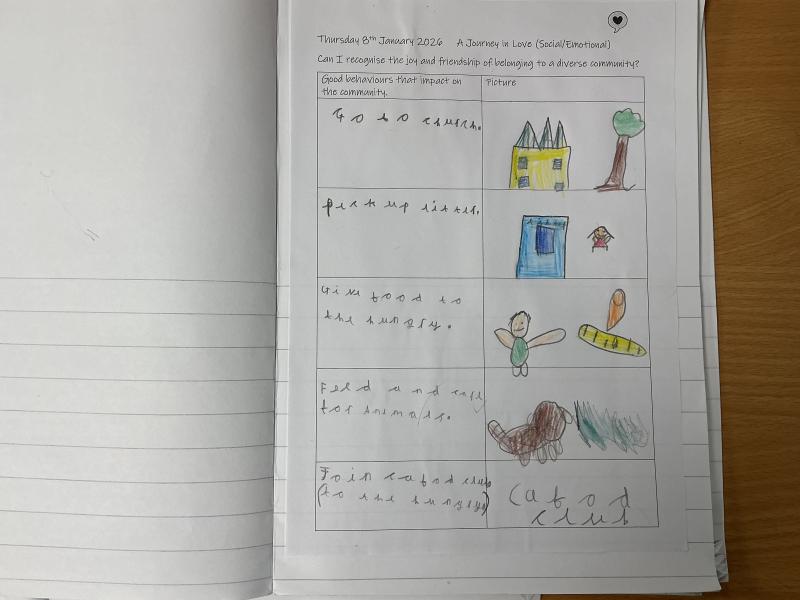 Thursday 8th January 2026 A Journey in Love (Social/Emotional)
Can I recognise the joy and friendship of belonging to a diverse community?
Good behaviours that impact on
the community.
Picture
Go to church.
Pick up litter.
Give food to
the hungry.
Feed and care
for animals.
Join cafod club
(to the hungry)
Cafod
club